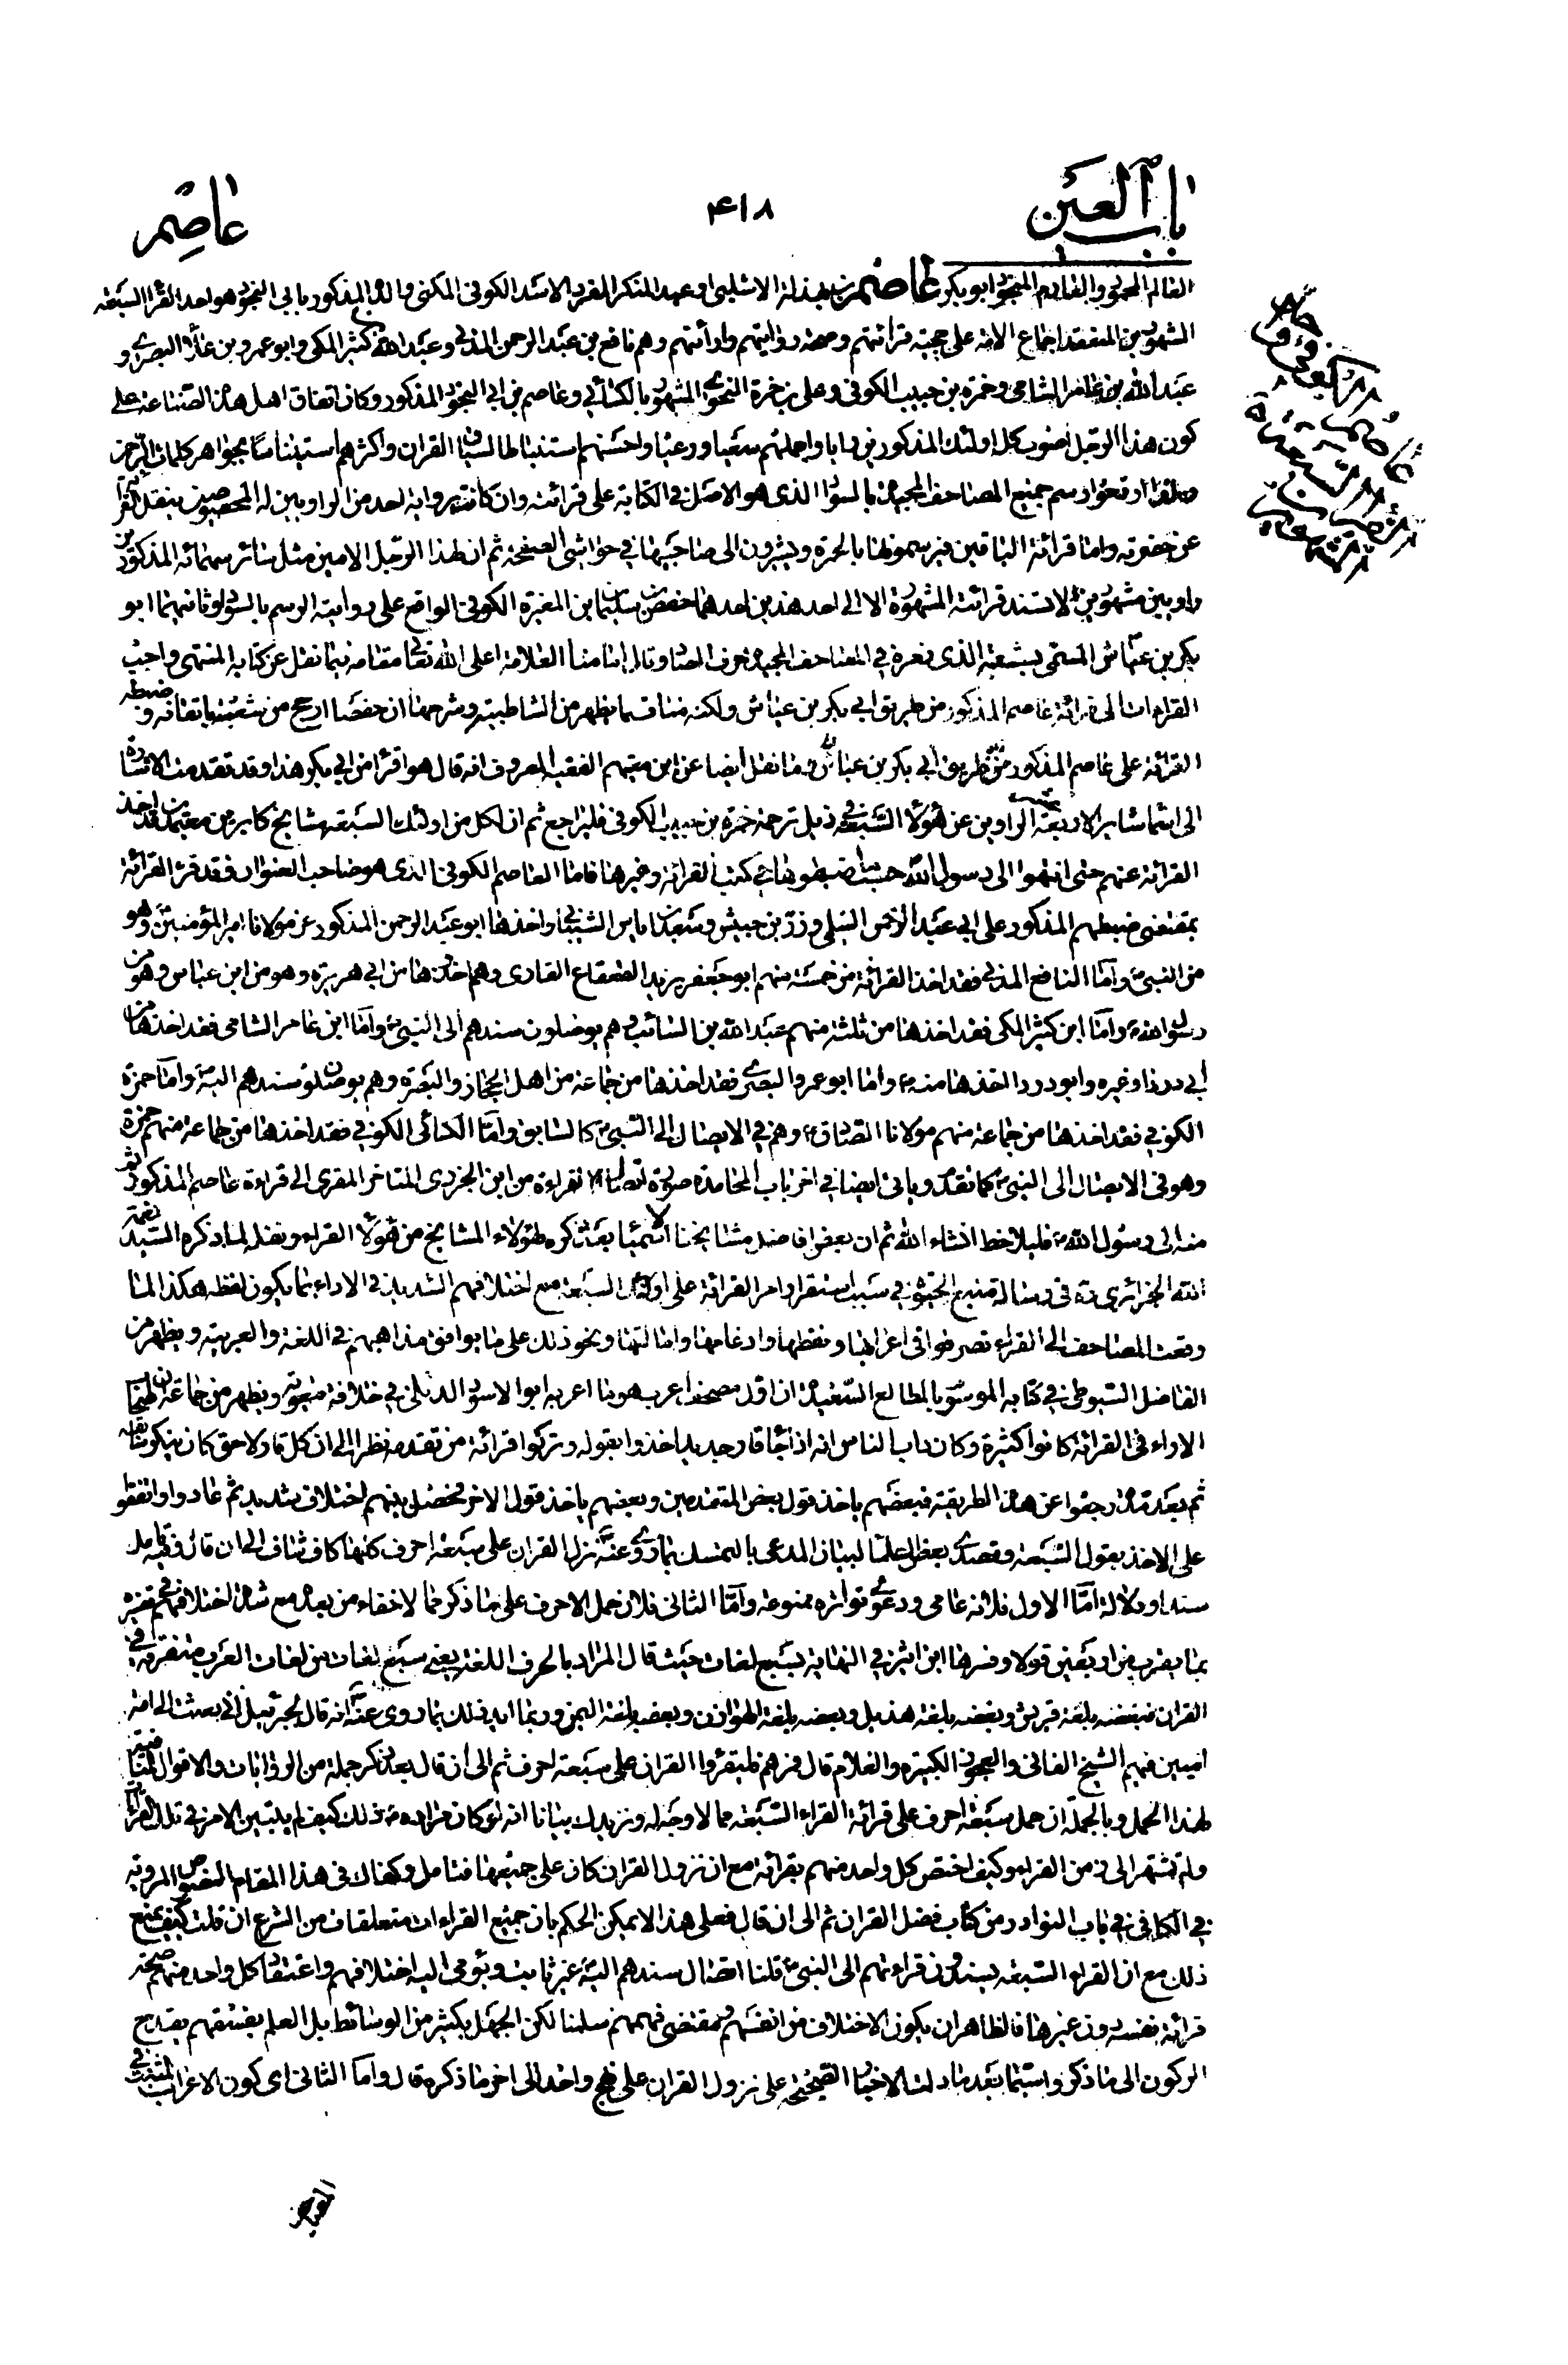 باب العين
٤١٨
عاصم
العالم المحمود والقارئ المجود ابو بكر عاصم بن بهدلة الاسدى الكوفى المكنى والده المذكور بابى النجود هو احد القراء السبعة
المشهورين المنعقد اجماع الامة على حجية قرائتهم وصحة روايتهم وادائهم وهم نافع بن عبد الرحمن المدنى وعبد الله بن كثير المكى وابو عمرو بن علاء البصرى و
عبد الله بن عامر الشامى وحمزة بن حبيب الكوفى وعلى بن حمزة النحوى المشهور بالكسائى وعاصم بن ابى النجود المذكور وكان اتفاق اهل هذه الصناعة على
كون هذا الرجل اصوب كل اولئك المذكورين رايا واجملهم سعيا ورعيا واحسنهم استنباطا لسياق القران واكثرهم استيناسا بجواهر كلمات الرحمن
رسم جميع المصاحف المجيدة بالسواد الذى هو الاصل فى الكتابة على قرائته وان كانت برواية احد من الراويين له المخصوصين بنقل القرائة
عن حضرته واما قرائة الباقين فيرسمونها بالحمرة ويشيرون الى صاحبها فى حواشى الصفحة ثم ان لهذا الرجل الامين مثل سائر سهمائه المذكورين
راويين مشهورين لا تستند قرائته المشهورة الا الى احد هذين احدهما حفص بن سليمان بن المغيرة الكوفى الواقع على روايته الرسم بالسواد وثانيهما ابو
بكر بن عياش المسمى بشعبة الذى فى المصاحف المجيدة حرف الصاد وقال امامنا العلامة اعلى الله تعالى مقامه فيما نقل عن كتابه المنتهى واحب
القراءات الى قرائة عاصم المذكور من طريق ابى بكر بن عياش ولكنه مناف لما يظهر من الشاطبية وشرحها ان حفصا ارجح من شعبة باتقانه وضبطه
القرائة على عاصم المذكور من طريق ابى بكر بن عياش وما نقل ايضا عن ابن متيهم الفقيه المعروف انه قال هو اقرأ من ابى بكر هذا وقد تقدمت الاشارة
الى اسماء سائر الاربعة عشر الراوين عن هؤلاء السبعة فى ذيل ترجمة حمزة بن حبيب الكوفى فليراجع ثم ان لكل من اولئك السبعة مشايخ كابرين معتمدين قد اخذ
القرائة عنهم حتى انتهوا الى رسول الله حسب ما ضبطوها فى كتب القرائة وغيرها فاما العاصم الكوفى الذى هو صاحب العنوان فقد قرء القرائة
بمقتضى ضبطهم المذكور على ابى عبد الرحمن السلمى وزر بن حبيش وسعد بن اياس الشيبانى واخذها ابو عبد الرحمن المذكور عن مولانا امير المؤمنين وهو
من النبى واما النافع المدنى فقد اخذ القرائة من خمسة منهم ابو جعفر يزيد القعقاع القارى وهم اخذوها من ابى هريرة وهو من ابن عباس وهو من
رسول الله واما ابن كثير المكى فقد اخذها من ثلثة منهم عبد الله بن السائب وهم يوصلون سندهم الى النبى واما ابن عامر الشامى فقد اخذها من
ابى درداء وغيره وابو درداء اخذها منه واما ابو عمرو البصرى فقد اخذها من جماعة من اهل الحجاز والبصرة وهم يوصلون سندهم اليه واما حمزة
الكوفى فقد اخذها من جماعة منهم مولانا الصادق وهم فى الايصال الى النبى كالسابق واما الكسائى الكوفى فقد اخذها من جماعة منهم حمزة
وهو فى الايصال الى النبى كما تقدم وياتى ايضا فى اخر باب المحامدة صورة اتصال القراءة من ابن الجزرى المتاخر المقرى الى قراءة عاصم المذكور ثم
منه الى رسول الله فليلاحظ انشاء الله ثم ان بعض افاضل مشايخنا بعد ذكره لهؤلاء المشايخ من هؤلاء القراء ونقله لما ذكره السيد نعمة
الله الجزائرى ره فى رسالة منبع الحيوة فى سبب استقرار امر القرائة على اولئك السبعة مع اختلافهم الشديد فى الاداء بما يكون لفظه هكذا لما
وقعت المصاحف الى القراء تصرفوا فى اعرابها ونقطها وادغامها وامالتها ونحو ذلك على ما يوافق مذاهبهم فى اللغة والعربية ويظهر من
الفاضل السيوطى فى كتابه الموسوم بالمطالع السعيدة ان اول مصحف اعرب هو ما اعربه ابو الاسود الدئلى فى خلافة معوية ويظهر من جماعة ان اصحاب
الاراء فى القرائة كانوا كثيرة وكان داب الناس انه اذا جاء قار جديد اخذوا بقوله وتركوا قرائة من تقدمه نظرا الى ان كل قار لاحق كان ينكر سابقه
ثم بعد مدة رجعوا عن هذه الطريقة فبعضهم ياخذ قول بعض المتقدمين وبعضهم ياخذ قول الاخر فحصل بينهم اختلاف شديد ثم عادوا واتفقوا
على الاخذ بقول السبعة وتصدى بعض العلماء لبيان المدعى بالتمسك بما روى عنه نزل القران على سبعة احرف كلها كاف شاف الى ان قال وفيه تامل
سندا ودلالة اما الاول فلانه عامى ودعوى تواتره ممنوعة واما الثانى فلان حمل الاحرف على ما ذكر مما لا خفاء من بعده مع شدة اختلافهم فى تفسيره
بما يقرب من اربعين قولا وفسرها ابن اثير فى النهاية بسبع لغات حيث قال المراد بالحرف اللغة يعنى سبع لغات من لغات العرب متفرقة فى
القران فبعضه بلغة قريش وبعضه بلغة هذيل وبعضه بلغة الهوازن وبعضه بلغة اليمن وربما ايد ذلك بما روى عنه انه قال لجبرئيل انى بعثت الى امة
اميين فيهم الشيخ الفانى والعجوز الكبيرة والغلام قال فمرهم فليقرؤا القران على سبعة احرف ثم الى ان قال بعد ذكر جملة من الروايات والاقوال المنافية
لهذا الحمل وبالجملة ان حمل سبعة احرف على قرائة القراء السبعة مما لا وجه له ونزيدك بيانا انه لو كان مراده ذلك كيف لم يتبين الامر فى تلك القراءات
ولم تشتهر الى زمن القراء وكيف اختص كل واحد منهم بقرائة مع ان نزول القران كان على جميعها فتامل وكفاك فى هذا المقام النصوص المروية
فى الكافى فى باب النوادر من كتاب فضل القران ثم الى ان قال فعلى هذا لا يمكن الحكم بان جميع القراءات متعلقات من الشرع ان قلت كيف يمنع
ذلك مع ان القراء السبعة يسندون قراءتهم الى النبى قلنا اتصال سندهم اليه غير ثابت ويؤمى اليه اختلافهم واعتقاد كل واحد منهم صحة
قرائة نفسه دون غيرها فالظاهر ان يكون الاختلاف من انفسهم وبمقتضى فهمهم سلمنا لكن الجهل بكثير من الوسائط بل العلم بفسقهم يقدح
الركون الى ما ذكر ولا سيما بعد ما دلت الاخبار الصحيحة على نزول القران على نهج واحد الى اخر ما ذكره قال واما الثانى اى كون الاعراب المثبت فى